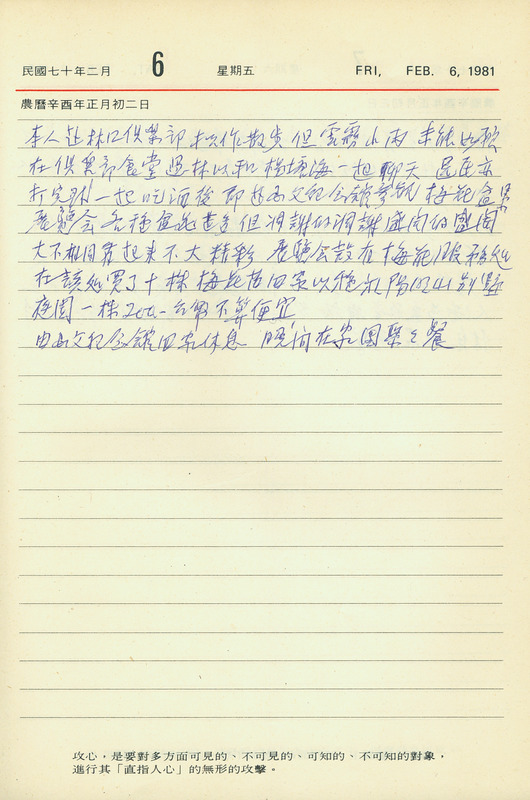 民國七十年二月 6 星期五 FRI, FEB. 6, 1981
農曆辛酉年正月初二日
本人赴林口俱樂部 作散步但雲霧小雨未能
在俱樂部食堂遇林以和 海一起聊天
一起吃酒後即赴中山紀念館參觀梅花盆景
展覽會各種盆 甚多但凋謝的凋謝盛開的盛開
大不相同看起來不大精彩 展覽會設有梅花
在該處買了十株梅花苗回家以種於陽明山別墅
庭園一株200.-台幣不算便宜
由中山紀念館回家休息 晚間在家團聚之餐
攻心，是要對多方面可見的、不可見的、可知的、不可知的對象，
進行其「直指人心」的無形的攻擊。